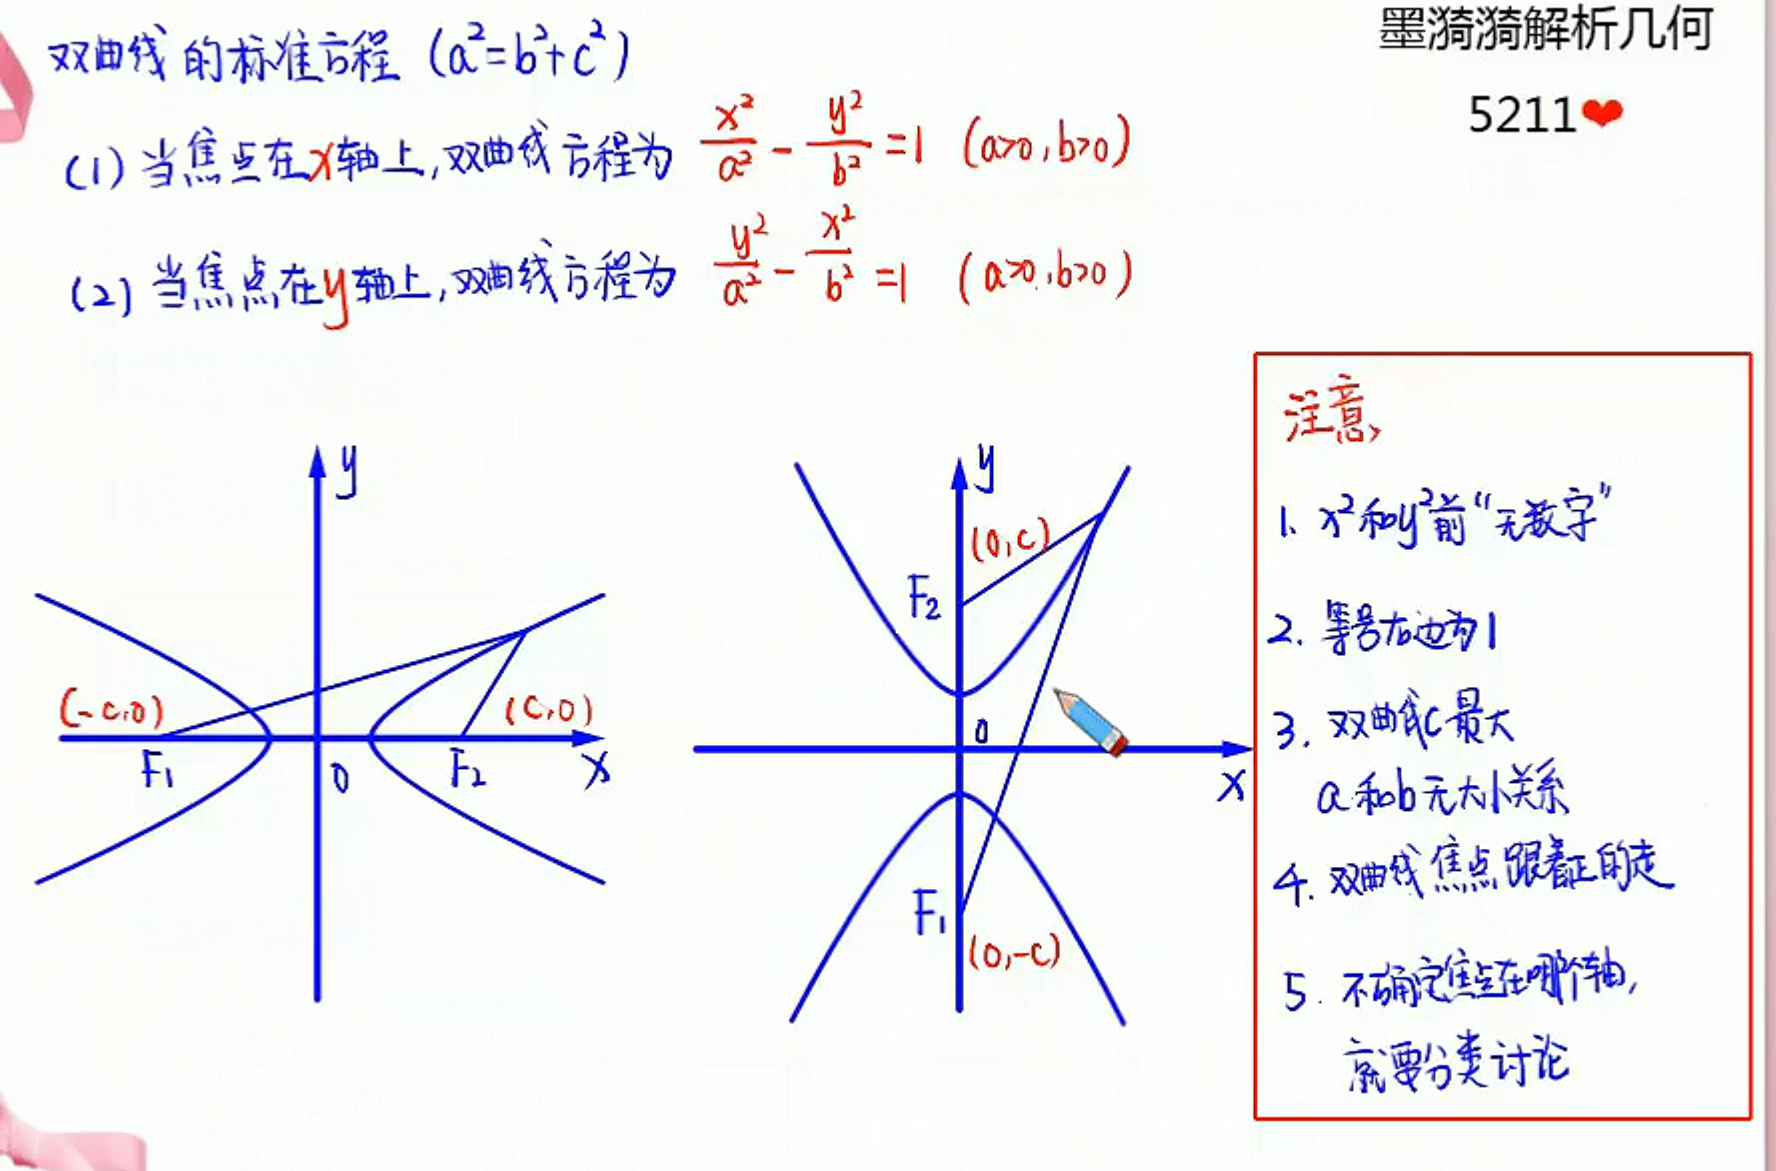 墨漪漪解析几何
5211❤
双曲线的标准方程 (a²=b²+c²)
(1) 当焦点在x轴上,双曲线方程为 x²/a² - y²/b² =1 (a>0,b>0)
(2) 当焦点在y轴上,双曲线方程为 y²/a² - x²/b² =1 (a>0,b>0)
y
(-c,0)
(c,0)
F₁
0
F₂
x
y
(0,c)
F₂
0
x
F₁
(0,-c)
注意
1. x²和y²前“无数字”
2. 等号右边为1
3. 双曲线c最大
a和b无大小关系
4. 双曲线焦点跟着正的走
5. 不确定焦点在哪个轴,
就要分类讨论